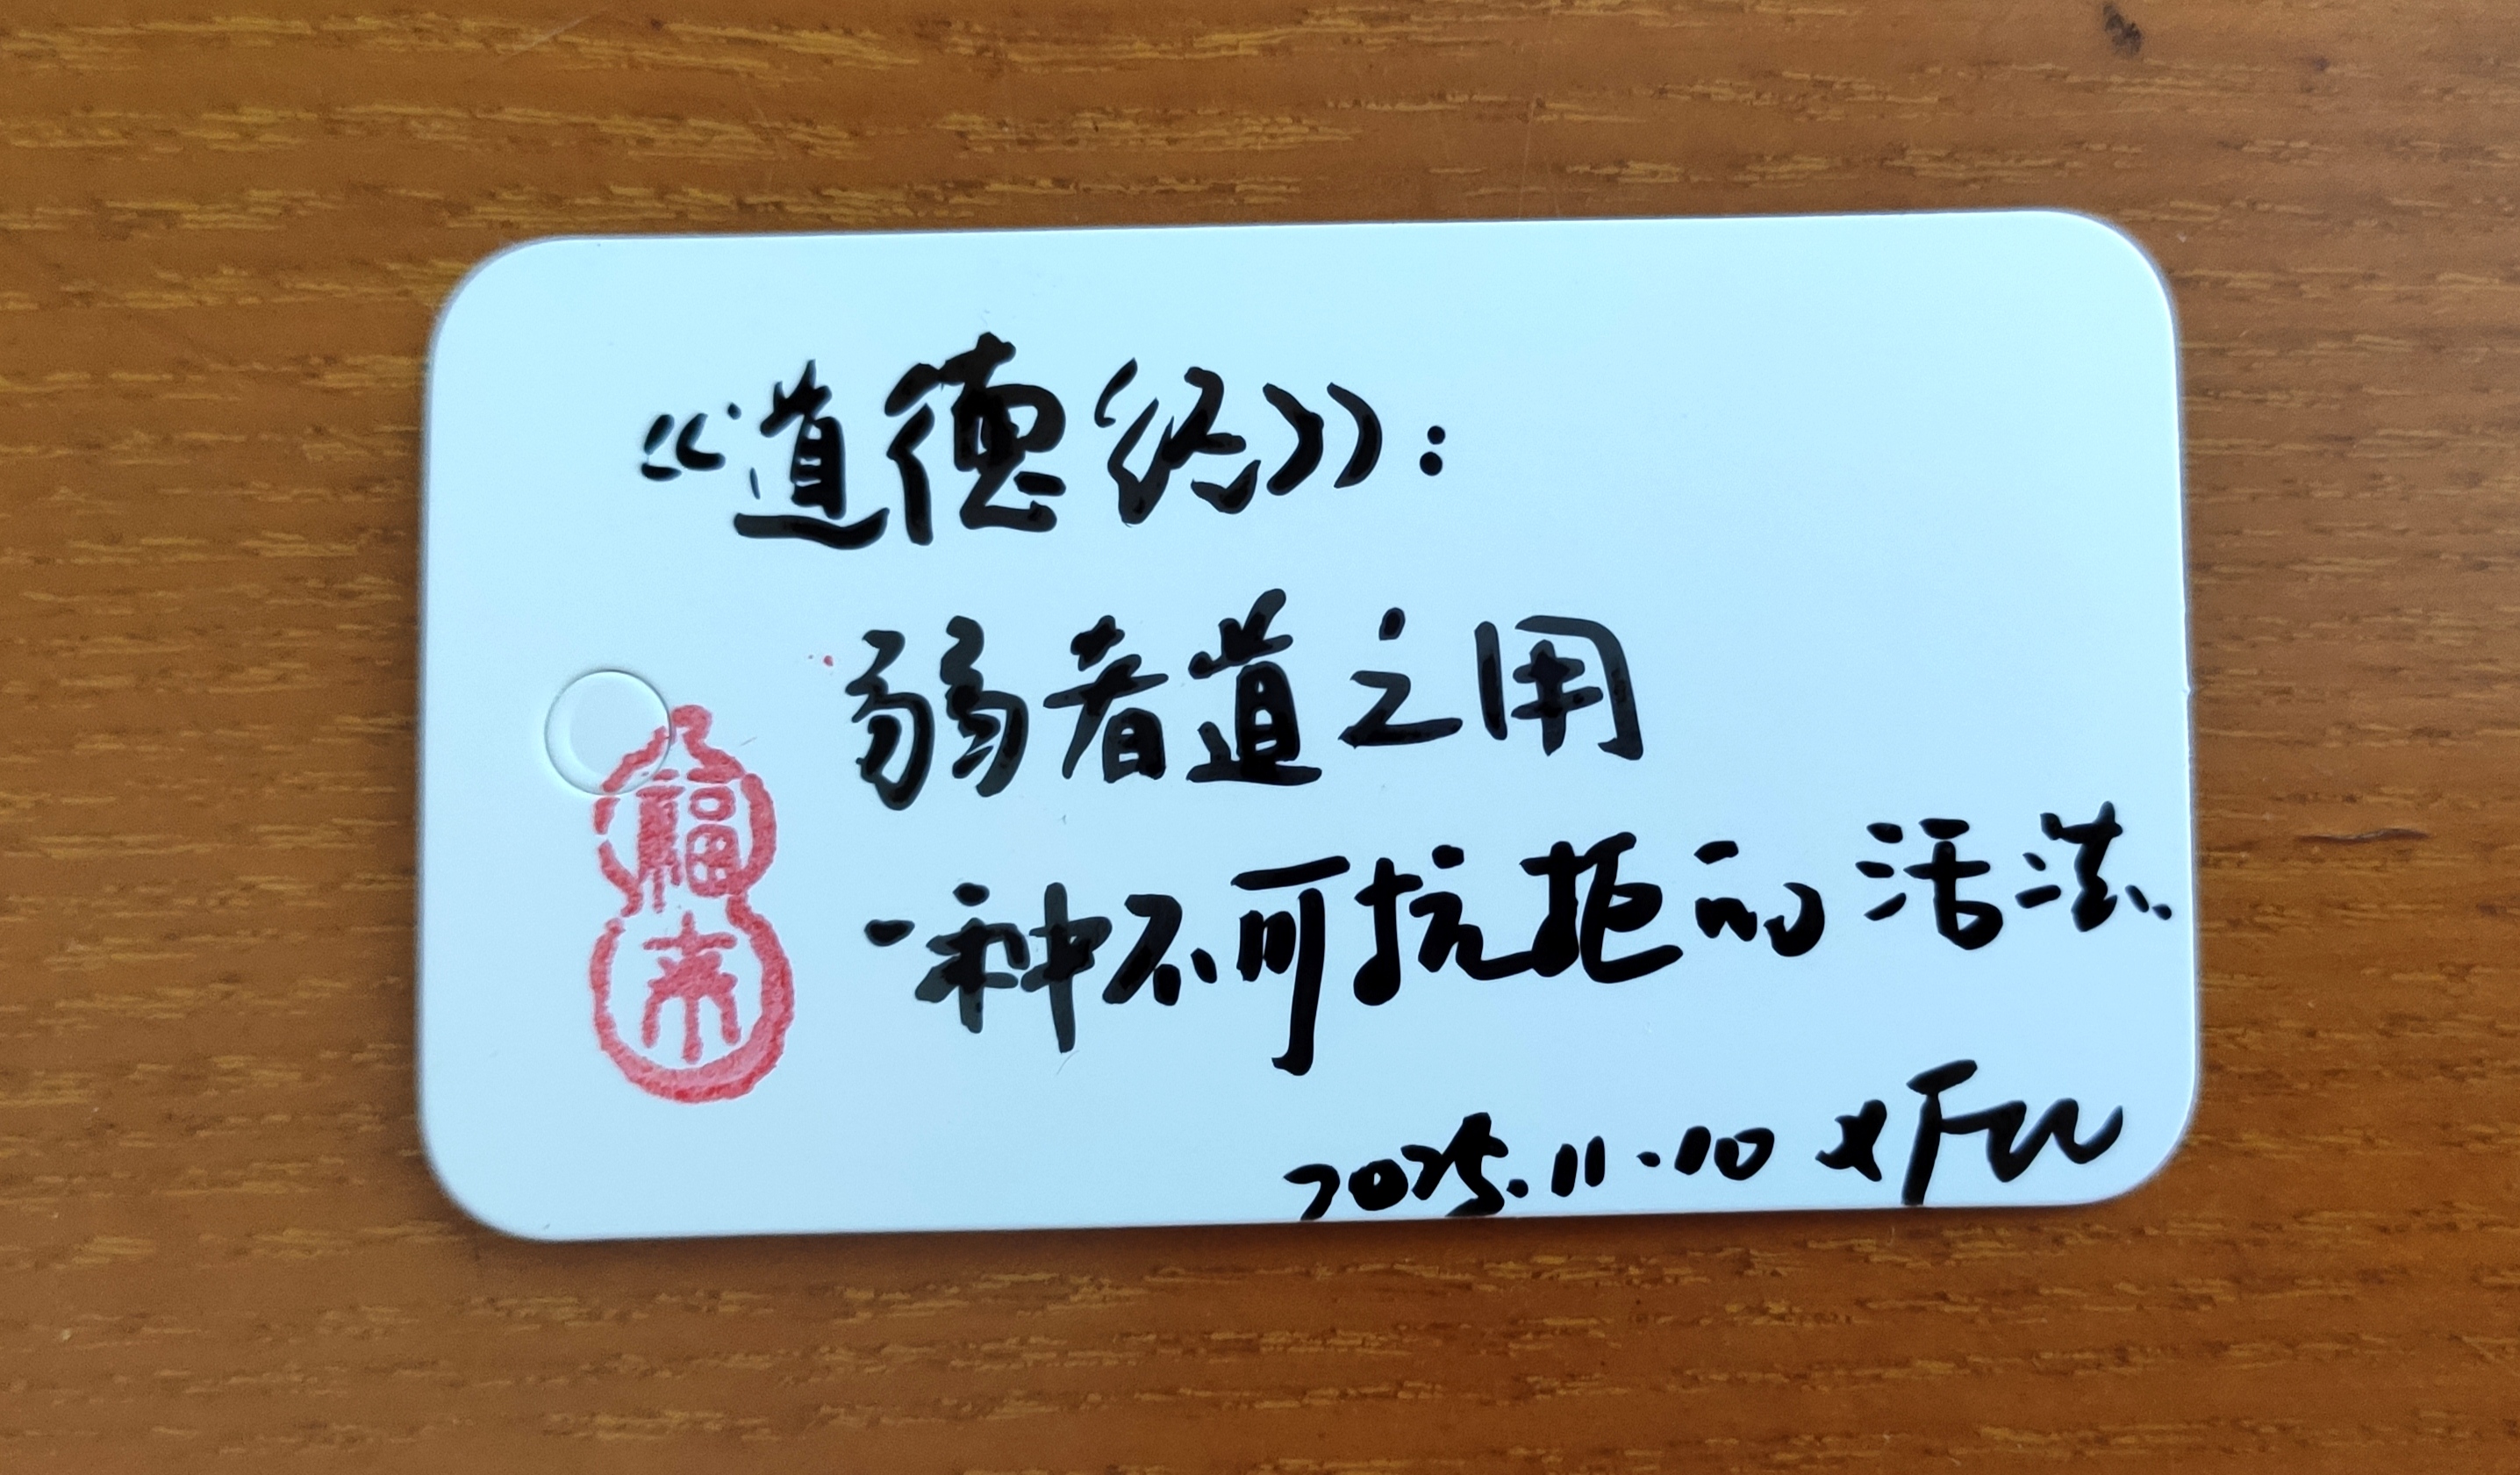 《道德经》:
弱者道之用
一种不可抗拒的活法
2025.11.10 xFu
福
来